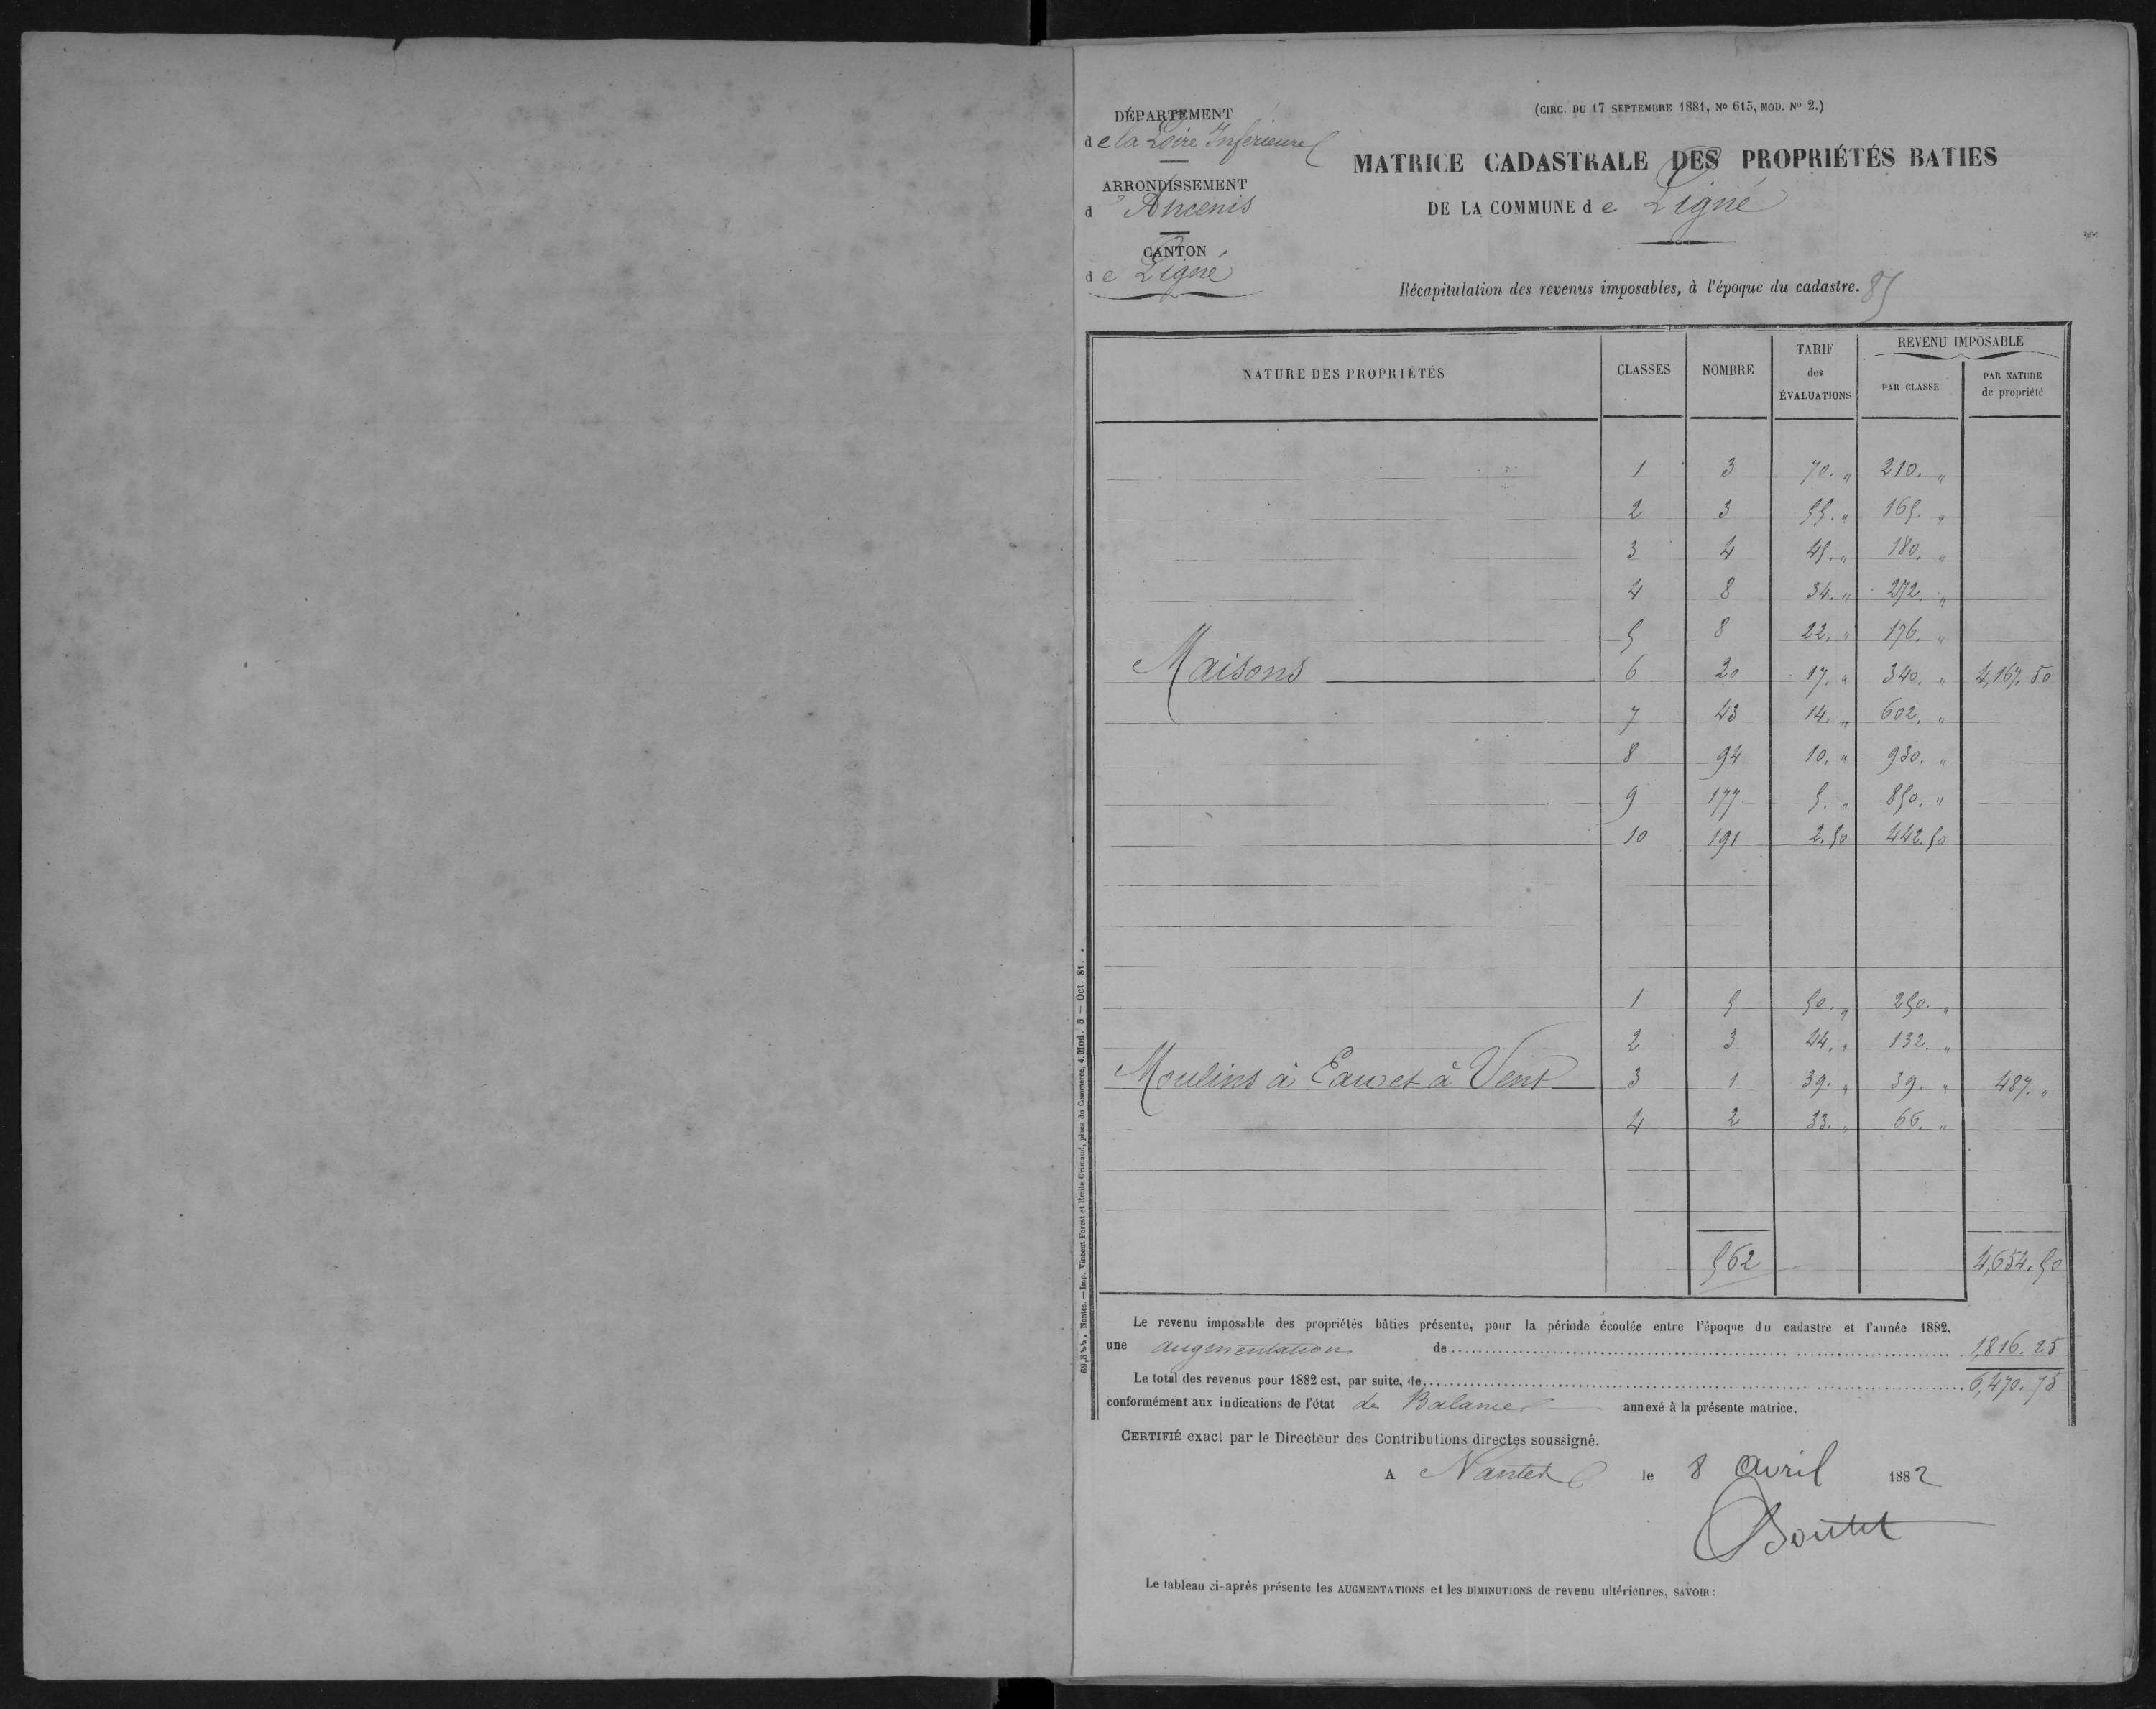 DÉPARTEMENT
de la Loire Inférieure
ARRONDISSEMENT
d'Ancenis
CANTON
de Ligné
(CIRC. DU 17 SEPTEMBRE 1881, No 615, MOD. No 2.)
MATRICE CADASTRALE DES PROPRIÉTÉS BATIES
DE LA COMMUNE de Ligné
Récapitulation des revenus imposables, à l'époque du cadastre. 85
NATURE DES PROPRIÉTÉS CLASSES NOMBRE TARIF des ÉVALUATIONS REVENU IMPOSABLE PAR CLASSE PAR NATURE de propriété
1 3 70. " 210. "
2 3 55. " 165. "
3 4 45. " 180. "
4 8 34. " 272. "
5 8 22. " 176. "
Maisons 6 20 17. " 340. " 4,167.50
7 43 14. " 602. "
8 94 10. " 930. "
9 177 5. " 850. "
10 191 2.50 442.50
1 5 50. " 250. "
2 3 44. " 132. "
Moulins à Eau et à Vent 3 1 39. " 39. " 487. "
4 2 33. " 66. "
562 4,654.50
Le revenu imposable des propriétés bâties présente, pour la période écoulée entre l'époque du cadastre et l'année 1882,
une augmentation de 1,816.25
Le total des revenus pour 1882 est, par suite, de 6,470.75
conformément aux indications de l'état de Balance annexé à la présente matrice.
CERTIFIÉ exact par le Directeur des Contributions directes soussigné.
A Nantes le 8 avril 1882
Boutet
Le tableau ci-après présente les AUGMENTATIONS et les DIMINUTIONS de revenu ultérieures, SAVOIR :
Nantes. — Imp. Vincent Forest et Emile Grimaud, place du Commerce, 4. Mod. 5 — Oct. 81.